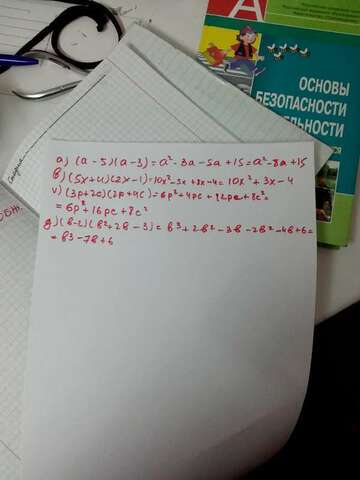 А
ОСНОВЫ
БЕЗОПАСНОСТИ
а) (a-5)(a-3)=a²-3a-5a+15=a²-8a+15
в) (5x+4)(2x-1)=10x²-5x+8x-4=10x²+3x-4
v) (3p+2c)(2p+4c)=6p²+4pc+12pc+8c²=
=6p²+16pc+8c²
g) (b-2)(b²+2b-3)=b³+2b²-3b-2b²-4b+6=
=b³-7b+6